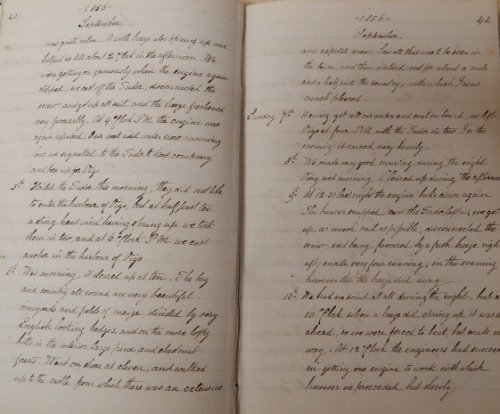 40
-1856-
September
was quite calm. A little breeze also sprang up and
helped us till about 2 o'clock in the afternoon. We
were getting on famously when the engine again
stopped. we cast off the Tudor, disconnected the
screw and got up all sail and the breeze freshened
very fairly. At 4 o'clock P.M. the engine was
again repaired. Our coal and water now running
low, we signalled to the Tudor to keep company
and bore up for Vigo
5th Hailed the Tudor this morning, they did not like
to enter the harbour of Vigo. But at half past ten
a strong head wind having sprung up we took
them in tow, and at 6 o'clock P.M. we cast
anchor in the harbour of Vigo
6th Wet morning, it cleared up at ten. The bay
and country all round are very beautiful
vineyards and fields of maize divided by very
English looking hedges, and on the more lofty
hills in the interior large pine and chestnut
forests. Went on shore at eleven, and walked
up to the castle from which there was an extensive
41
-1856-
September
and capital view. Saw all that was to be seen in
the town, and then walked out for about a mile
and a half into the country, with which I was
much pleased.
Sunday 7th Having got all our water and coal on board, we left
Vigo at four P.M. with the Tudor in tow. In the
evening it rained very heavily.
8th We made very good running during the night
Very wet morning. Cleared up during the afternoon
9th At 12.30 last night the engine broke down again
The hawser snapped, and the Tudor left us, we got
up as much sail as possible, disconnected the
screw and being favoured by a fresh breeze right
aft, made very fair running, in the evening
however the the breeze died away.
10th We had no wind at all during the night, but at
10 o'clock when a breeze did spring up it was
ahead, so we were forced to beat but made no
way. At 12 o'clock the engineers had succeeded
in getting one engine to work with which
however we proceeded but slowly.